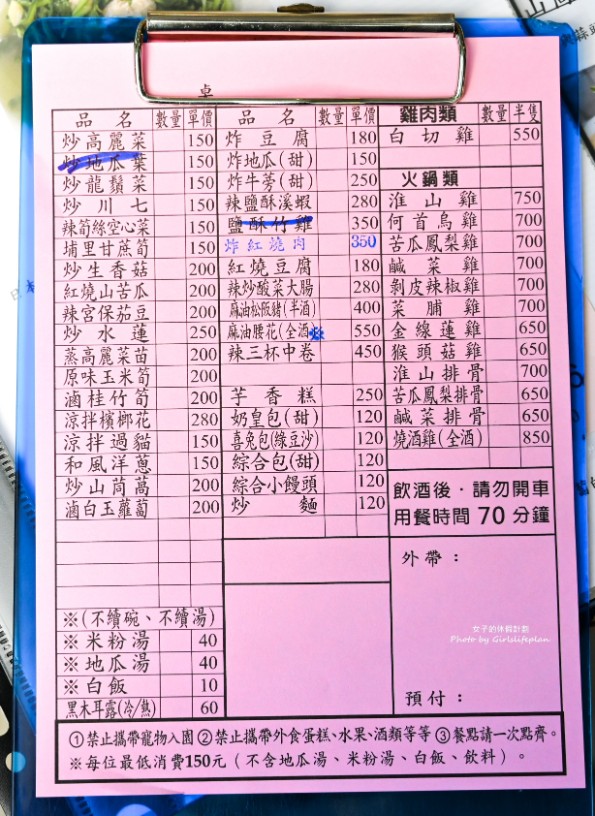 卓
品名 數量 單價
炒高麗菜 150
炒地瓜葉 150
炒龍鬚菜 150
炒川七 150
辣筍絲空心菜 150
埔里甘蔗筍 150
炒生香菇 200
紅燒山苦瓜 200
辣宮保茄豆 200
炒水蓮 250
蒸高麗菜苗 200
原味玉米筍 200
滷桂竹筍 200
涼拌檳榔花 280
涼拌過貓 150
和風洋蔥 150
炒山茼蒿 200
滷白玉蘿蔔 200
※(不續碗、不續湯)
※米粉湯 40
※地瓜湯 40
※白飯 10
黑木耳露(冷/熱) 60
品名 數量 單價
炸豆腐 180
炸地瓜(甜) 150
炸牛蒡(甜) 250
辣鹽酥溪蝦 280
鹽酥竹雞 350
炸紅燒肉 350
紅燒豆腐 180
辣炒酸菜大腸 280
麻油松阪豬(半酒) 400
麻油腰花(全酒) 550
辣三杯中卷 450
芋香糕 250
奶皇包(甜) 120
喜兔包(綠豆沙) 120
綜合包(甜) 120
綜合小饅頭 120
炒麵 120
雞肉類 數量 半隻
白切雞 550
火鍋類
淮山雞 750
何首烏雞 700
苦瓜鳳梨雞 700
鹹菜雞 700
剝皮辣椒雞 700
菜脯雞 700
金線蓮雞 650
猴頭菇雞 650
淮山排骨 700
苦瓜鳳梨排骨 650
鹹菜排骨 650
燒酒雞(全酒) 850
飲酒後·請勿開車
用餐時間70分鐘
外帶:
女子的休假計劃
Photo by Girlslifeplan
預付:
①禁止攜帶寵物入園②禁止攜帶外食蛋糕、水果、酒類等等③餐點請一次點齊。
※每位最低消費150元(不含地瓜湯、米粉湯、白飯、飲料)。